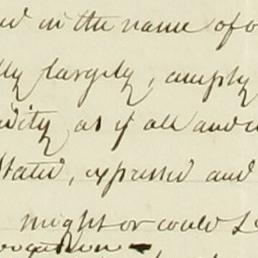 in the name of
largely, amply
as if all and
stated, expressed and
might or could